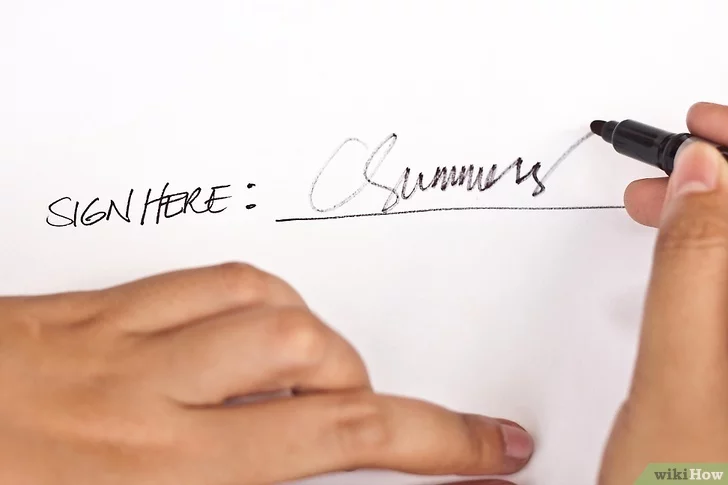 SIGN HERE: CSummers
wikiHow